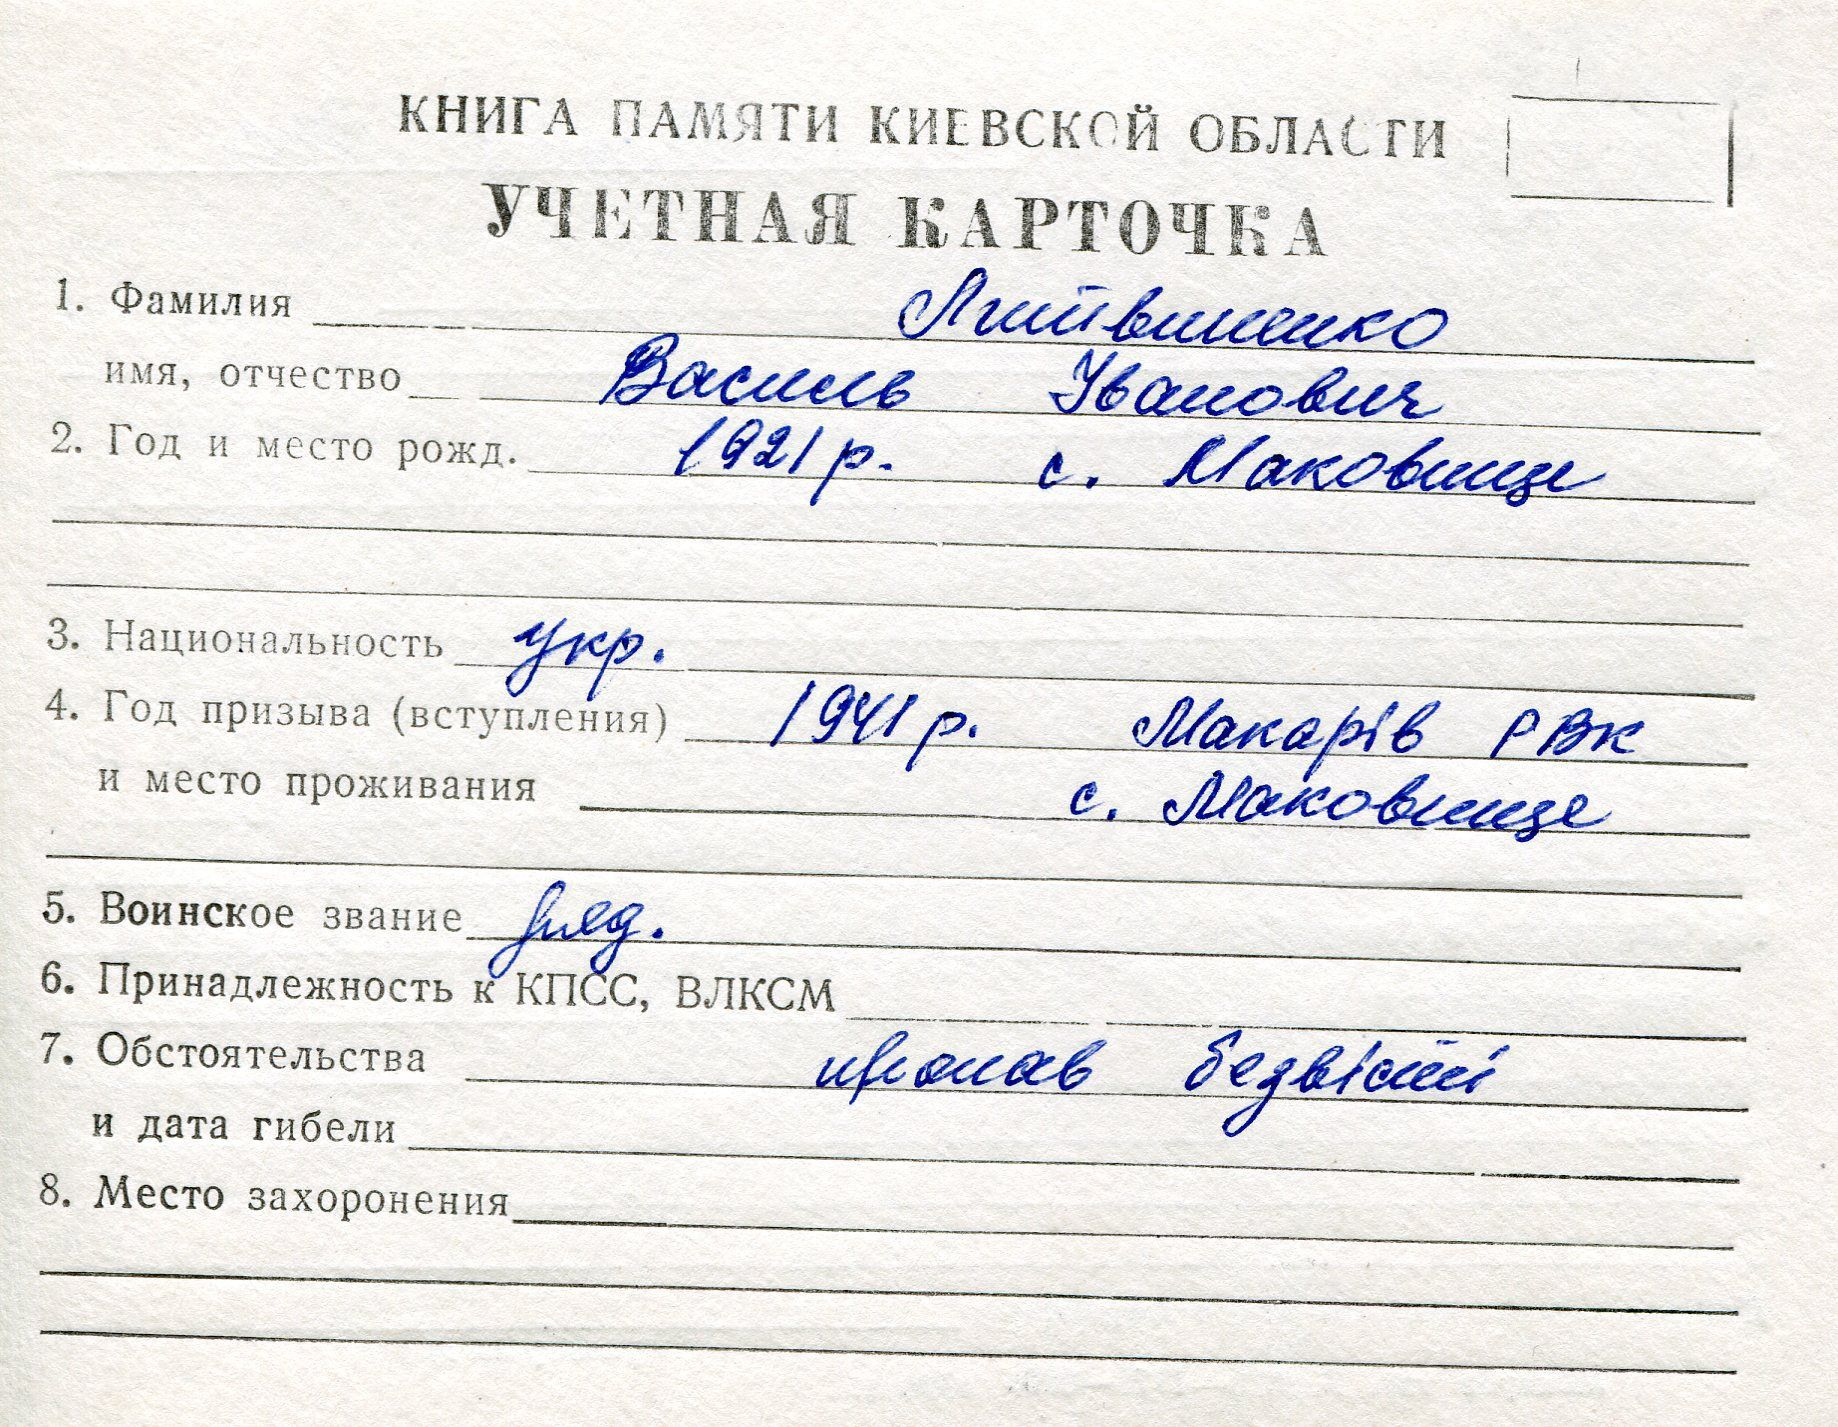 КНИГА ПАМЯТИ КИЕВСКОЙ ОБЛАСТИ
УЧЕТНАЯ КАРТОЧКА
1. Фамилия Литвиненко
имя, отчество Василь Іванович
2. Год и место рожд. 1921 р. с. Маковище
3. Национальность укр.
4. Год призыва (вступления) 1941 р. Макарів РВК
и место проживания с. Маковище
5. Воинское звание ряд.
6. Принадлежность к КПСС, ВЛКСМ
7. Обстоятельства пропав безвісті
и дата гибели
8. Место захоронения